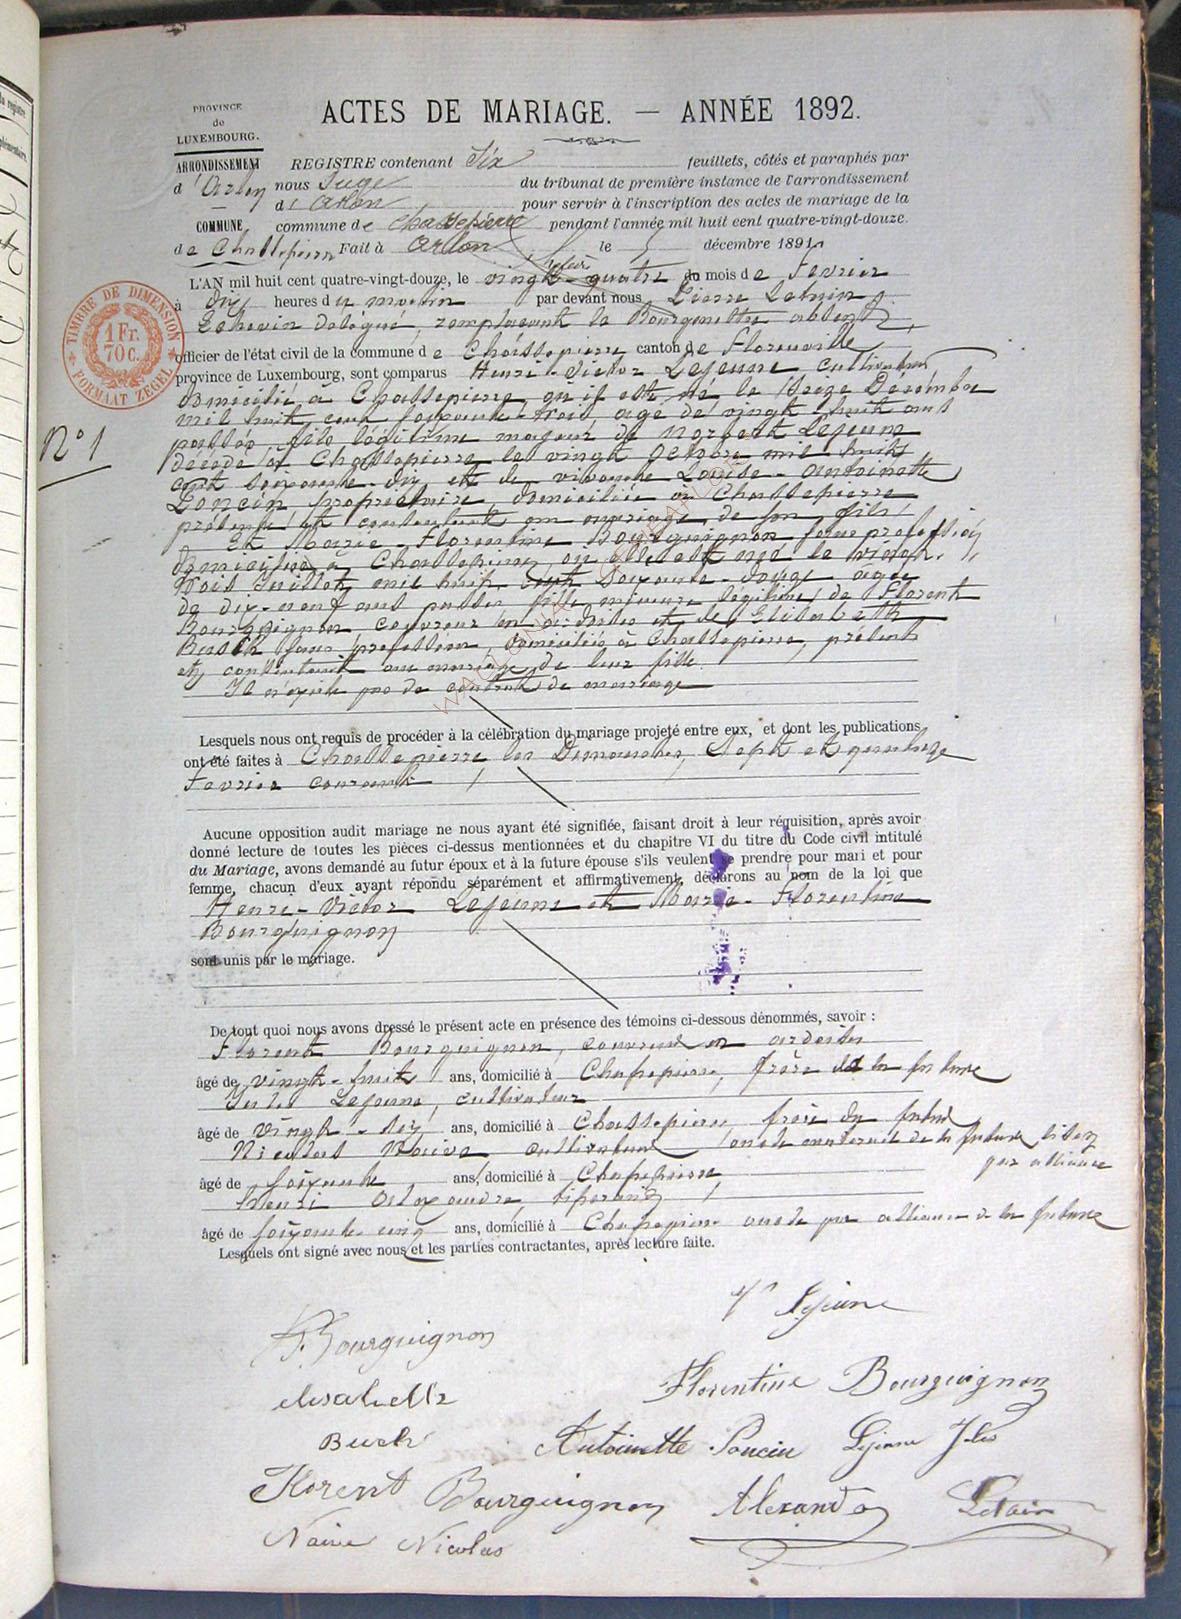 PROVINCE
de
LUXEMBOURG.
ARRONDISSEMENT
d'Arlon
COMMUNE
de Chassepierre
ACTES DE MARIAGE. — ANNÉE 1892.
REGISTRE contenant Six feuillets, côtés et paraphés par
nous Juge du tribunal de première instance de l'arrondissement
d'Arlon pour servir à l'inscription des actes de mariage de la
commune de Chassepierre pendant l'année mil huit cent quatre-vingt-douze.
Fait à Arlon le 5 décembre 1891
TIMBRE DE DIMENSION
1 Fr.
70 c.
FORMAAT ZEGEL
N° 1
L'AN mil huit cent quatre-vingt-douze, le vingt-quatre du mois de Fevrier
à dix heures du matin par devant nous Pierre
Echevin délégué, remplaçant le Bourgmestre absent,
officier de l'état civil de la commune de Chassepierre canton de Florenville
province de Luxembourg, sont comparus Henri-Victor Lejeune, cultivateur
domicilié à Chassepierre où il est né le treize Décembre
mil huit cent soixante-trois âgé de vingt huit ans
passés, fils légitime majeur de Norbert Lejeune
décédé à Chassepierre le vingt Octobre mil huit
cent soixante-dix et de vivante Louise-Antoinette
Poncin, propriétaire, domiciliée à Chassepierre
présente et consentante au mariage de son fils,
Et Marie-Florentine Bourguignon sans profession
domiciliée à Chassepierre, où elle est née le vingt-
trois Juillet mil huit cent soixante-douze âgée
de dix-neuf ans passés fille mineure légitime de Florent
Bourguignon couvreur en ardoises et de Elisabeth
Busch sans profession, domiciliés à Chassepierre, présents
et consentant au mariage de leur fille.
Il n'existe pas de contrat de mariage
Lesquels nous ont requis de procéder à la célébration du mariage projeté entre eux, et dont les publications
ont été faites à Chassepierre les Dimanches, Sept et quatorze
Fevrier courant
Aucune opposition audit mariage ne nous ayant été signifiée, faisant droit à leur réquisition, après avoir
donné lecture de toutes les pièces ci-dessus mentionnées et du chapitre VI du titre du Code civil intitulé
du Mariage, avons demandé au futur époux et à la future épouse s'ils veulent se prendre pour mari et pour
femme, chacun d'eux ayant répondu séparément et affirmativement, déclarons au nom de la loi que
Henri-Victor Lejeune et Marie-Florentine
Bourguignon
sont unis par le mariage.
De tout quoi nous avons dressé le présent acte en présence des témoins ci-dessous dénommés, savoir :
Florent Bourguignon, couvreur en ardoises
âgé de vingt-huit ans, domicilié à Chassepierre, frère de la future
Jules Lejeune, cultivateur
âgé de vingt-dix ans, domicilié à Chassepierre, frère du futur
Nicolas Naive cultivateur oncle maternel de la future
par alliance
âgé de soixante ans, domicilié à Chassepierre
Henri Alexandre,
âgé de soixante-cinq ans, domicilié à Chassepierre oncle par alliance de la future
Lesquels ont signé avec nous et les parties contractantes, après lecture faite.
V Lejeune
F. Bourguignon
Florentine Bourguignon
elisabeth
Busch
Antoinette Poncin Lejeune Jules
Florent Bourguignon Alexandre
Naive Nicolas